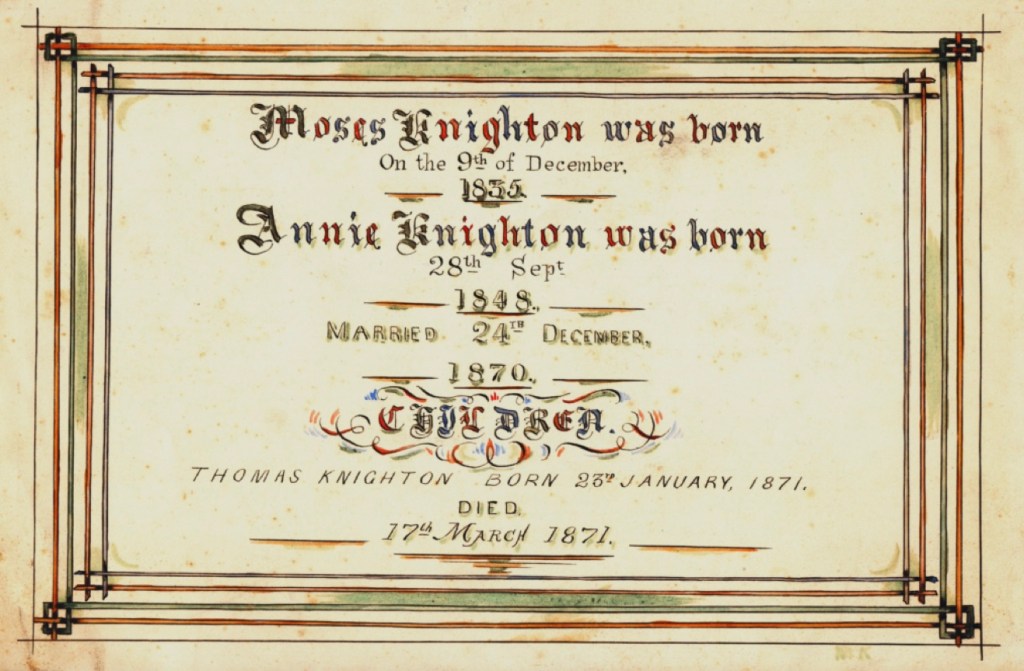 Moses Knighton was born
On the 9th of December,
1835.
Annie Knighton was born
28th Sept
1848.
MARRIED 24TH DECEMBER,
1870.
CHILDREN.
THOMAS KNIGHTON BORN 23RD JANUARY, 1871.
DIED.
17th MARCH 1871.
MK